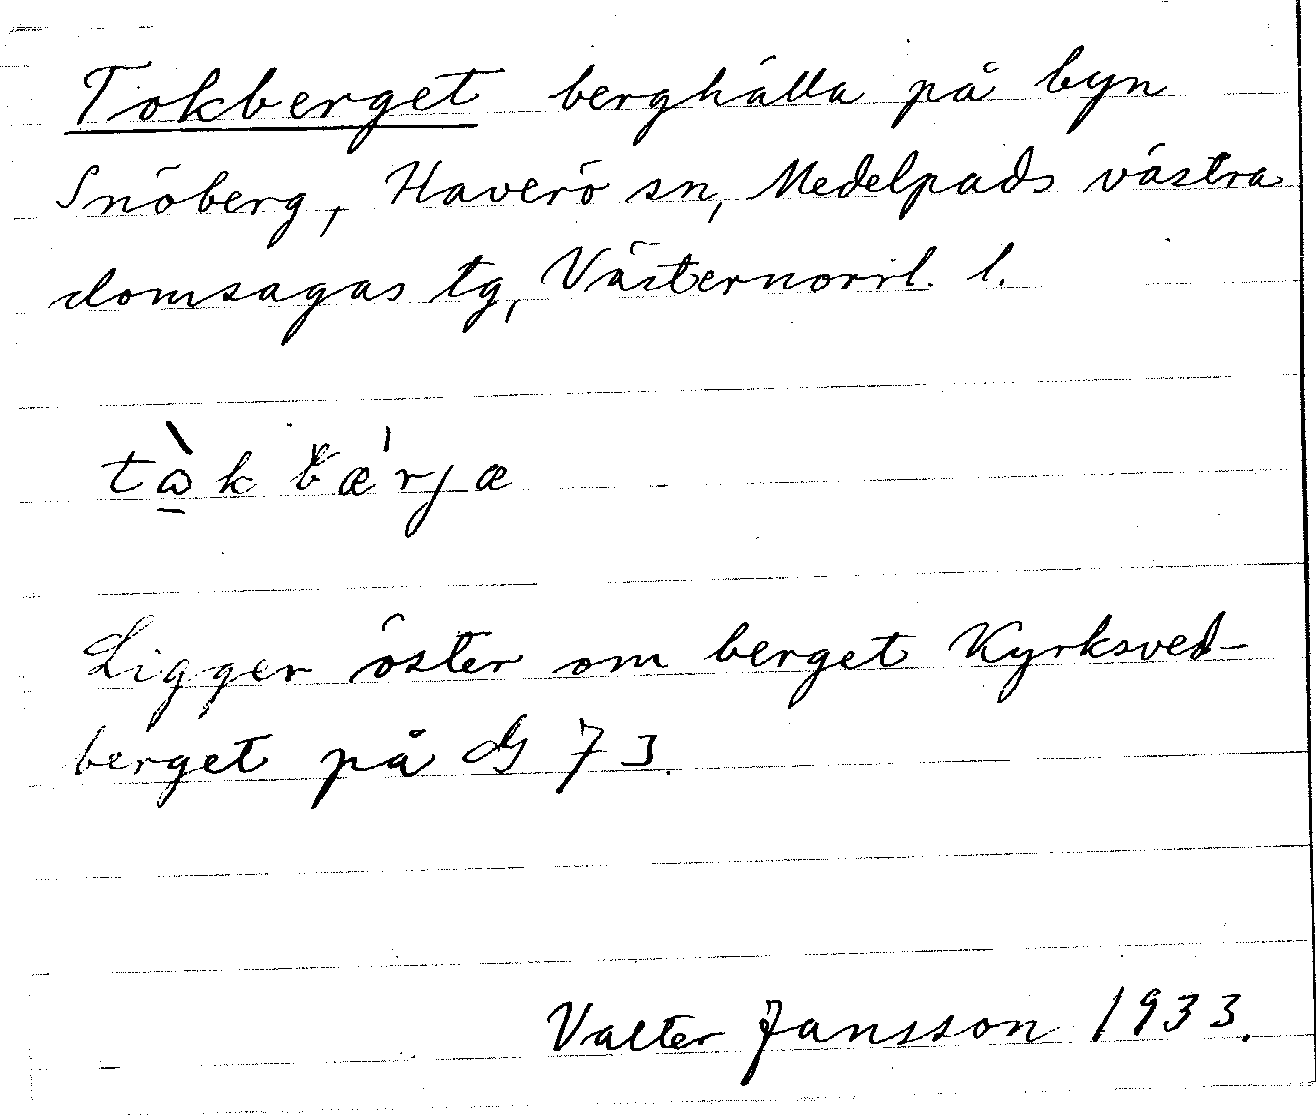 Tokberget berghälla på byn
Snöberg, Haverö sn, Medelpads västra
domsagas tg, Västernorrl. l.
tὼk bæ'rjæ
Ligger öster om berget Kyrksved-
berget på GS 73.
Valter Jansson 1933.